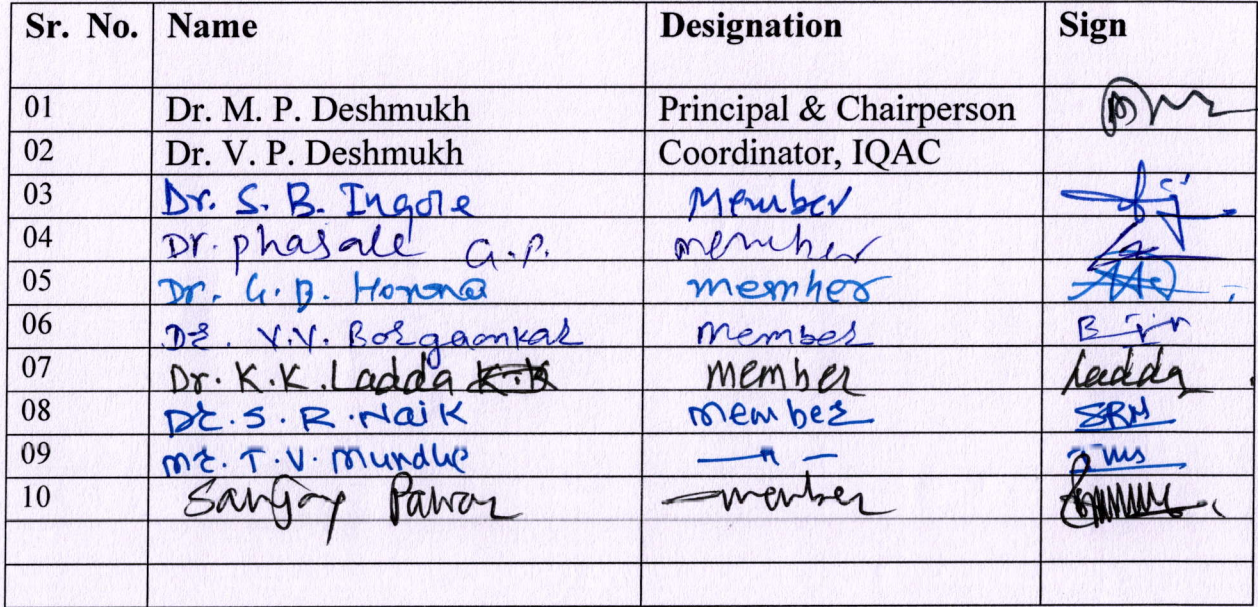 Sr. No. Name Designation Sign
01 Dr. M. P. Deshmukh Principal & Chairperson
02 Dr. V. P. Deshmukh Coordinator, IQAC
03 Dr. S. B. Ingole Member
04 Dr. phasale G.P. member
05 Dr. G. B. Honna member
06 Dr. V.V. Borgaonkar Member
07 Dr. K.K. Ladda K.K member Ladda
08 Dr. S. R. Naik member SRN
09 mr. T.V. Mundhe — " —
10 Sanjay Pawar member